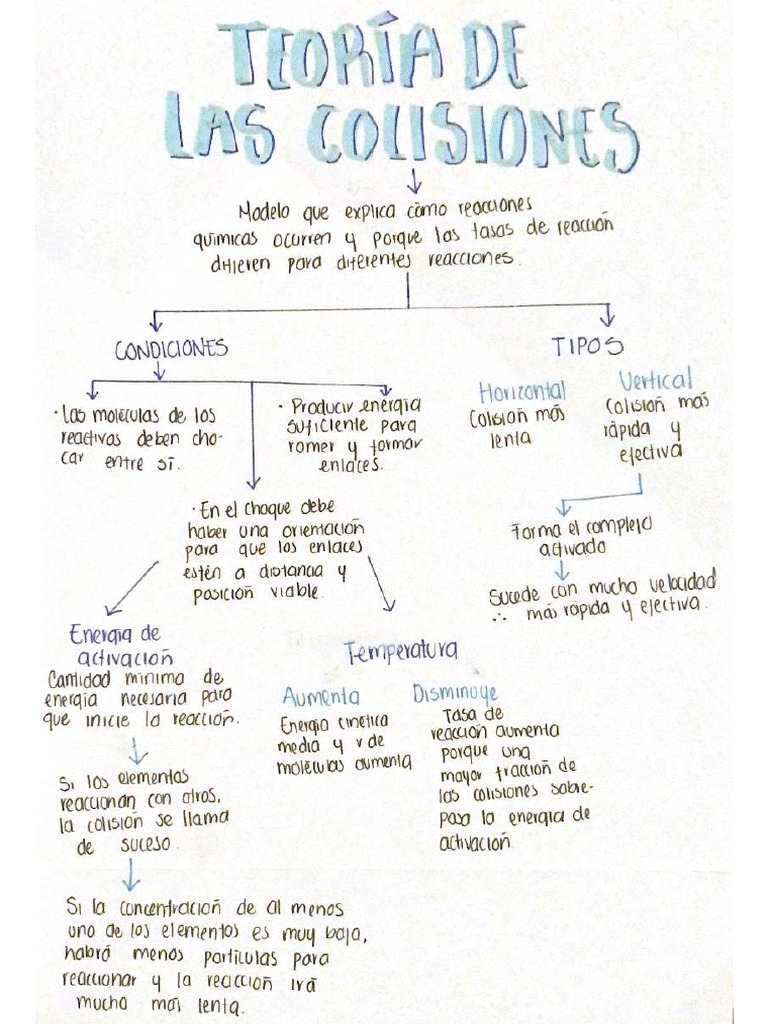 TEORÍA DE
LAS COLISIONES
Modelo que explica cómo reacciones
químicas ocurren y porque las tasas de reacción
difieren para diferentes reacciones.
CONDICIONES
· Las moléculas de los
reactivas deben cho-
car entre sí.
· Producir energía
suficiente para
romer y formar
enlaces.
· En el choque debe
haber una orientación
para que los enlaces
estén a distancia y
posición viable.
TIPOS
Horizontal
Colisión más
lenta
Vertical
Colisión más
rápida y
efectiva
Forma el complejo
activado
Sucede con mucho velocidad
∴ más rápida y efectiva.
Energía de
activación
Cantidad mínima de
energía necesaria para
que inicie la reacción.
Si los elementos
reaccionan con otros,
la colisión se llama
de suceso.
Si la concentración de al menos
uno de los elementos es muy baja,
habrá menos partículas para
reaccionar y la reacción irá
mucho más lenta.
Temperatura
Aumenta
Energía cinética
media y v de
moléculas aumenta
Disminuye
Tasa de
reacción aumenta
porque una
mayor fracción de
las colisiones sobre-
pasa la energía de
activación